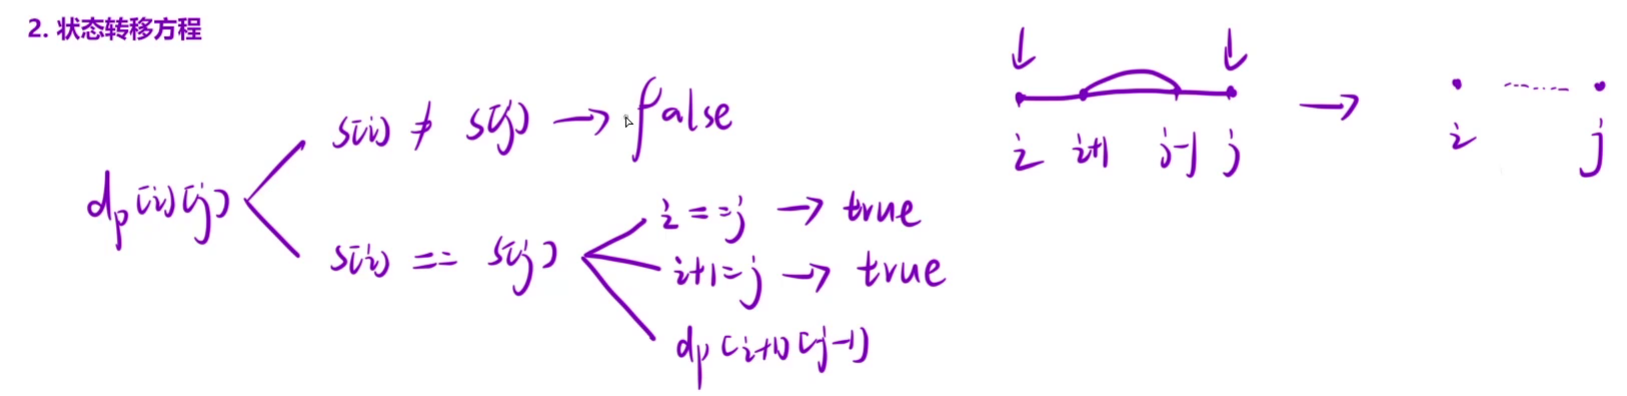 2. 状态转移方程
s[i] ≠ s[j] → false
dp[i][j]
s[i] == s[j]
i == j → true
i+1 = j → true
dp[i+1][j-1]
i i+1 j-1 j → i ...... j